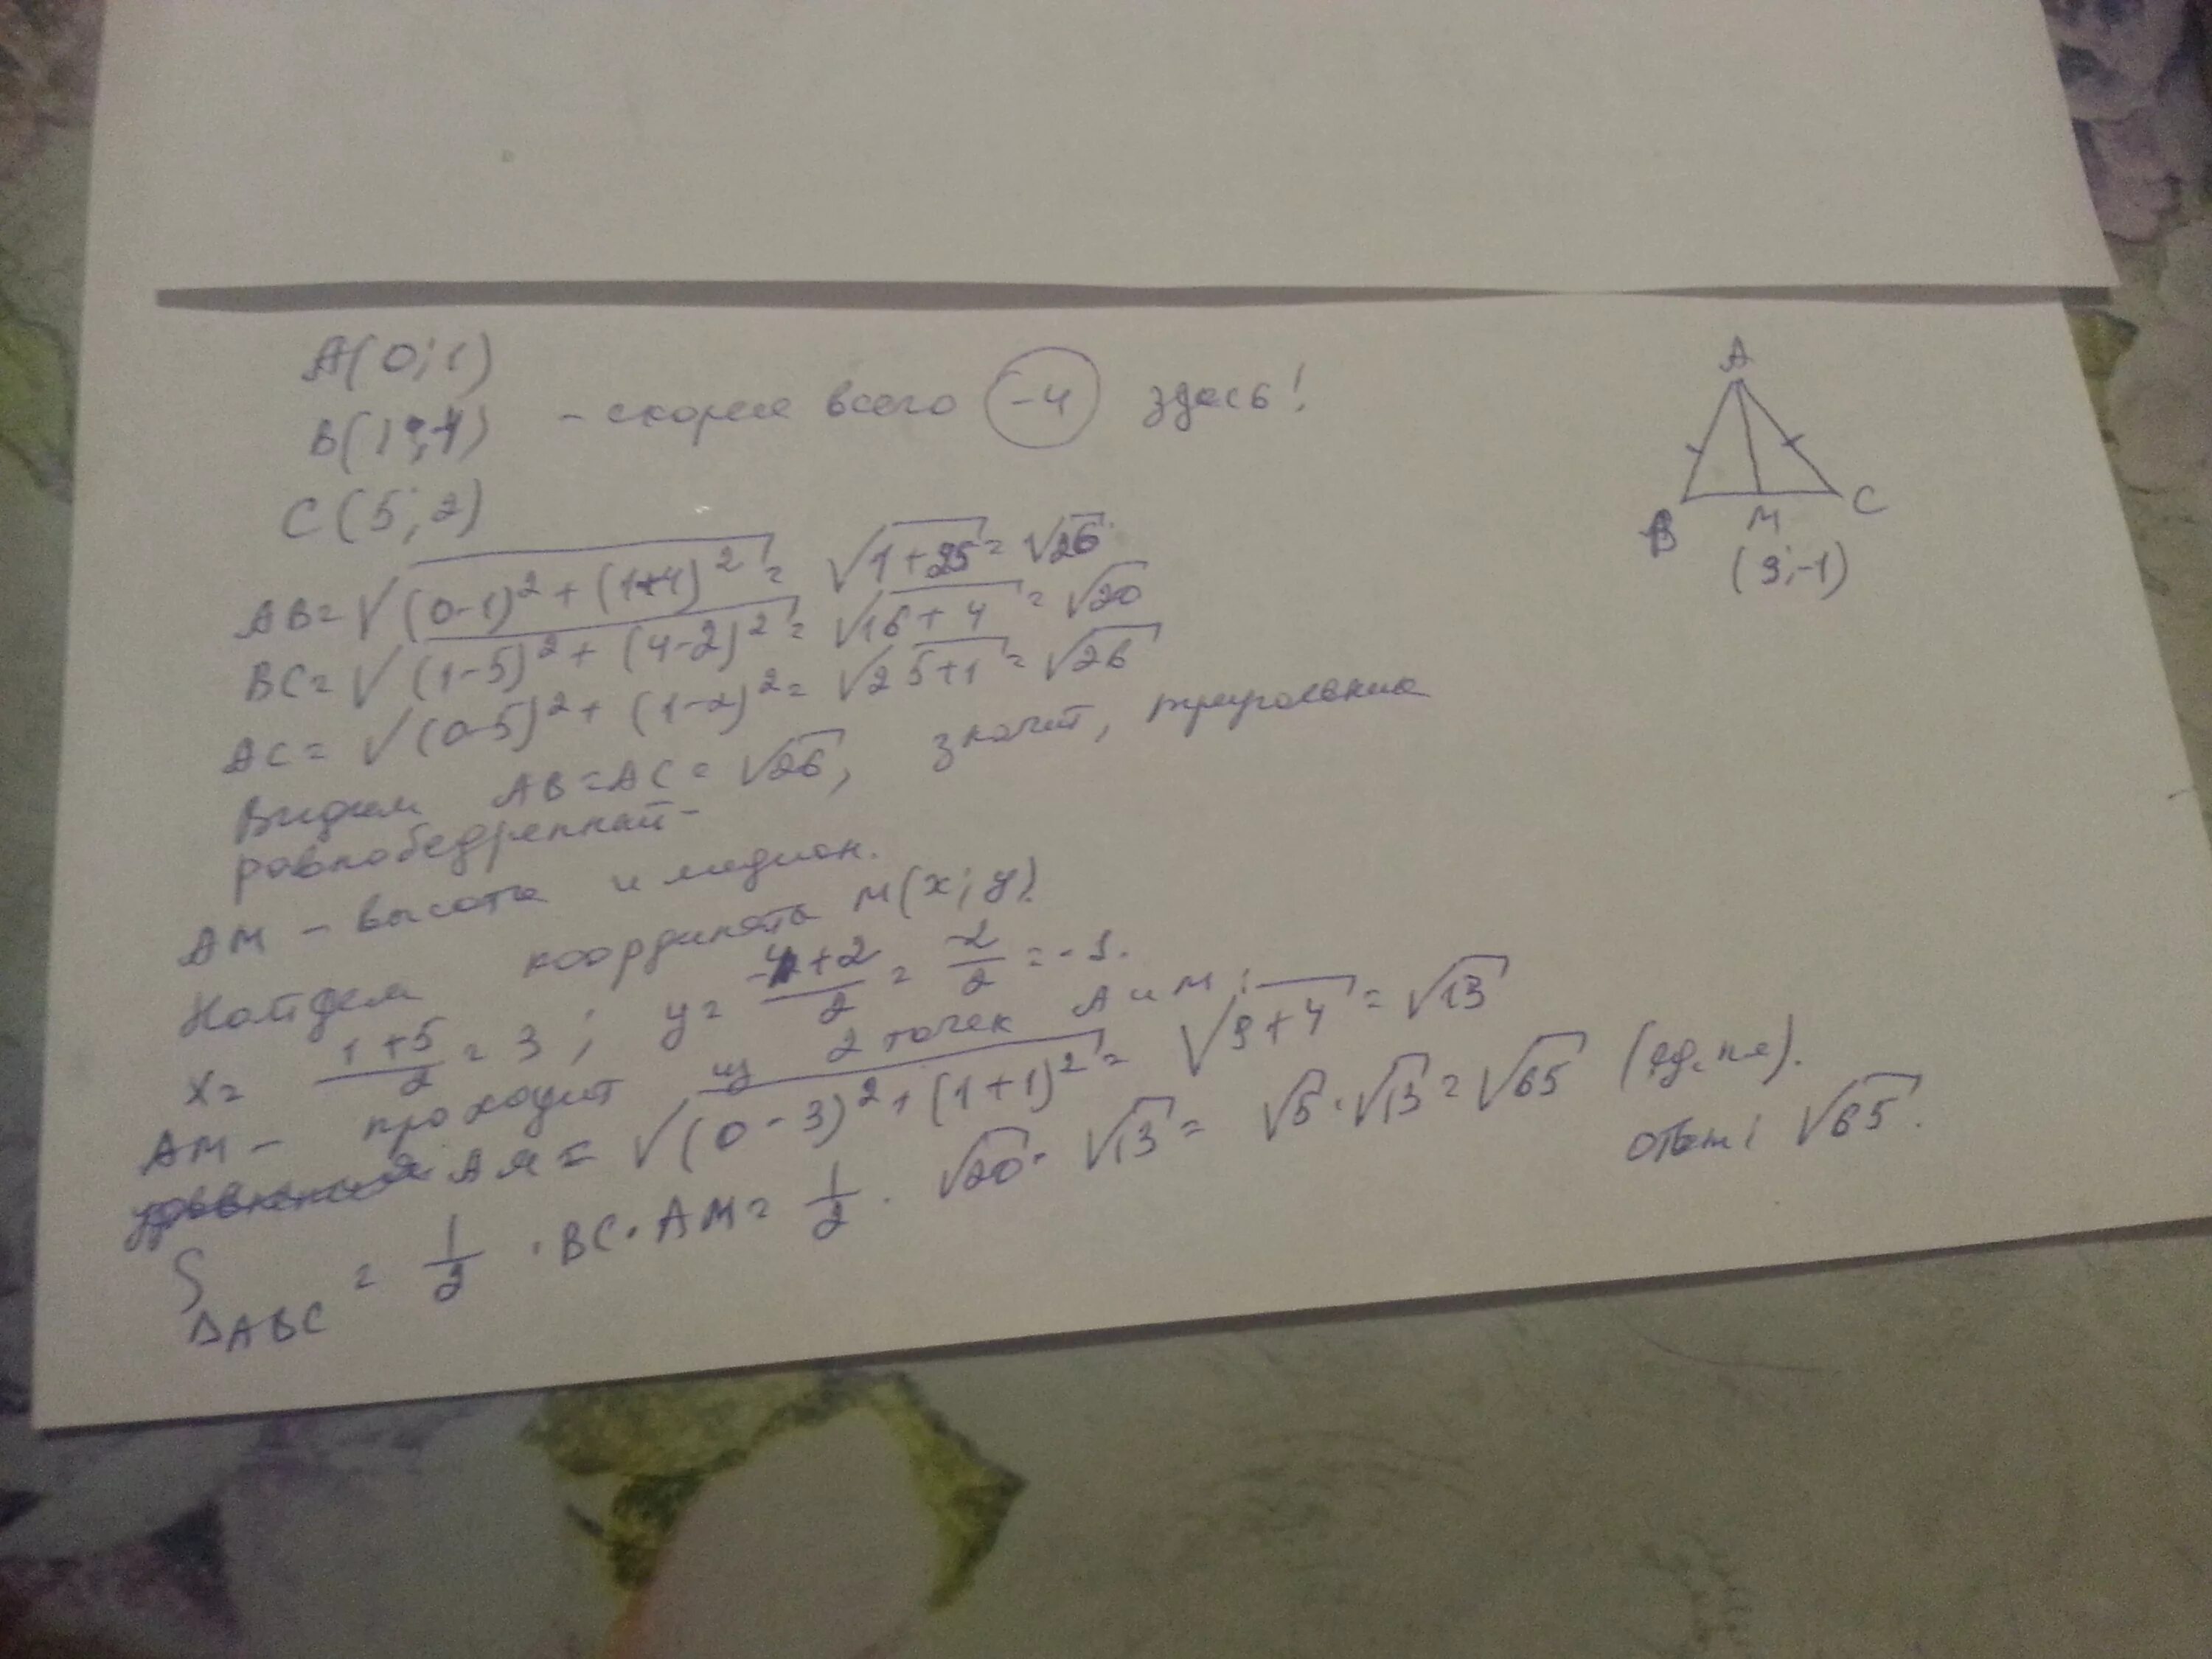 A(0;1)
B(1;-4) - скорее всего -4 здесь!
C(5;2)
A
B M C
(3;-1)
AB=√((0-1)²+(1+4)²)=√(1+25)=√26
BC=√((1-5)²+(4-2)²)=√(16+4)=√20
AC=√((0-5)²+(1-2)²)=√(25+1)=√26
Видим AB=AC=√26, значит, треугольник
равнобедренный-
AM - высота и медиан.
Найдем координаты M(x;y)
x= (1+5)/2=3; y=(-4+2)/2=-2/2=-1.
AM- проходит из 2 точек A и M:
AM=√((0-3)²+(1+1)²)=√(9+4)=√13
S ΔABC = 1/2·BC·AM=1/2·√20·√13=√5·√13=√65 (ед. пл).
ответ: √65.